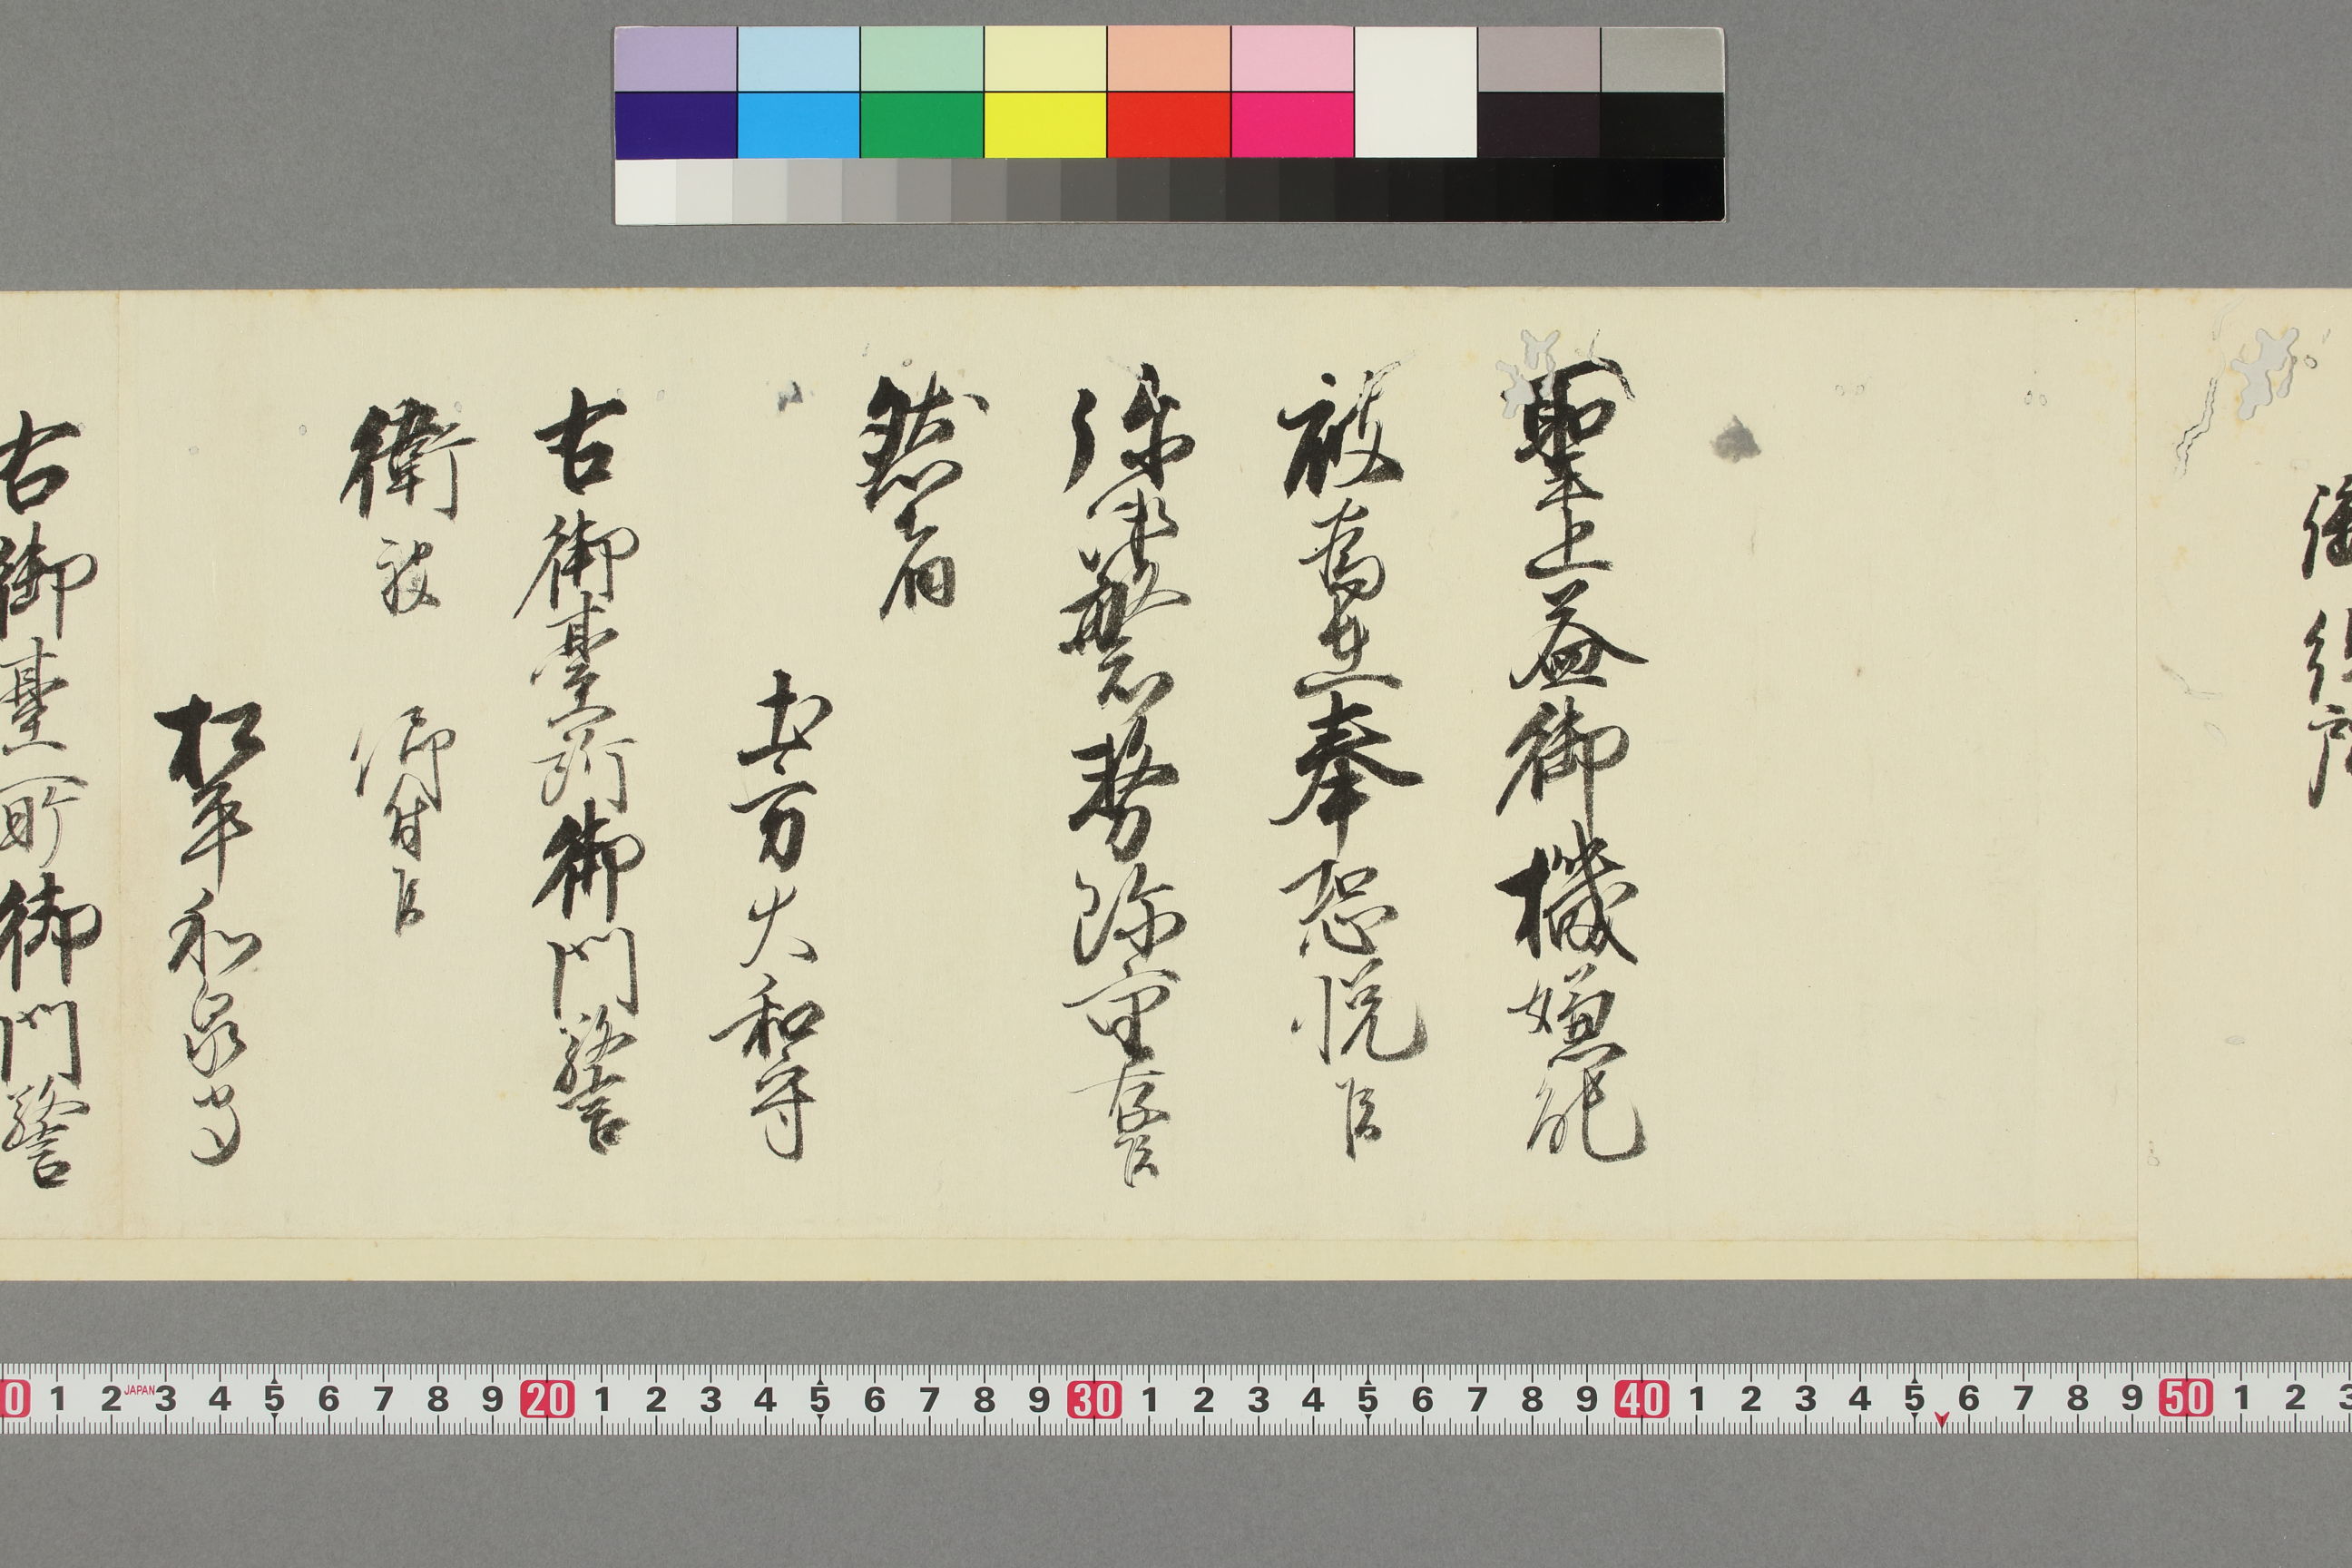 聖上益御機嫌能
被為在奉恐悦候
然者
土方大和守
右御臺所御門警
衛被 仰付候
松平和泉守
右御臺所御門警
0 1 2 JAPAN 3 4 5 6 7 8 9 20 1 2 3 4 5 6 7 8 9 30 1 2 3 4 5 6 7 8 9 40 1 2 3 4 5 6 7 8 9 50 1 2 3